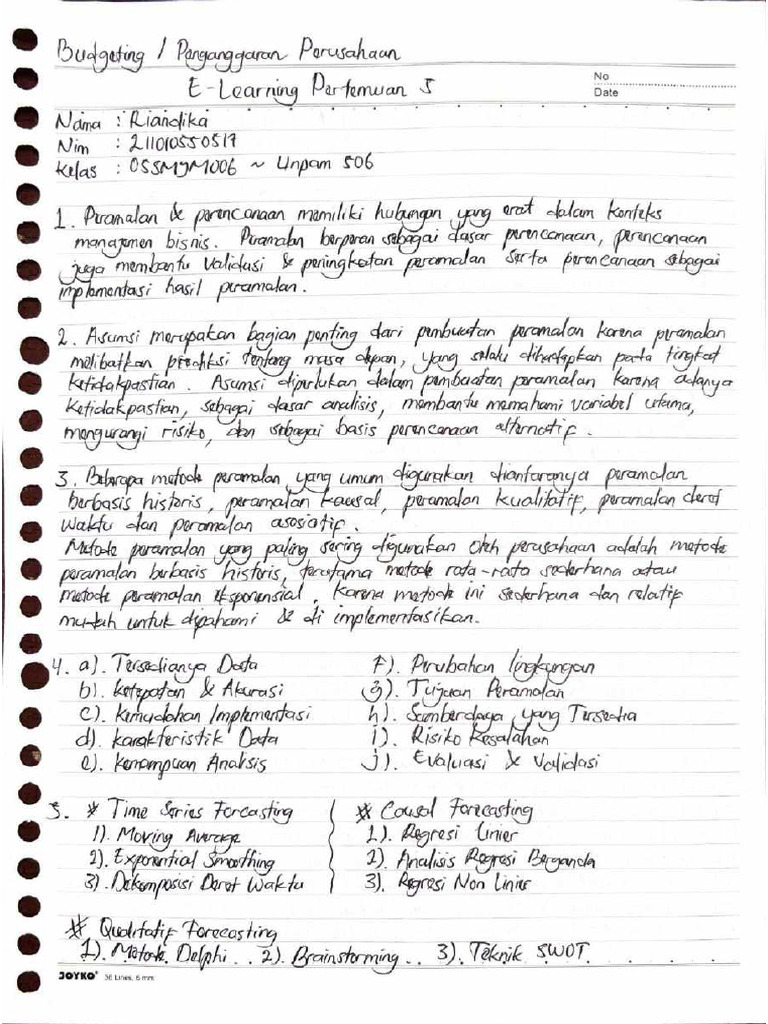 Budgeting / Penganggaran Perusahaan
E-Learning Pertemuan 5
No
Date
Nama : Riandika
Nim : 211010550517
Kelas : 05SMJM006 ~ Unpam 506
1. Peramalan & perencanaan memiliki hubungan yang erat dalam konteks
manajemen bisnis. Peramalan berperan sebagai dasar perencanaan, perencanaan
juga membantu validasi & peningkatan peramalan serta perencanaan sebagai
implementasi hasil peramalan.
2. Asumsi merupakan bagian penting dari pembuatan peramalan karena peramalan
melibatkan prediksi tentang masa depan, yang selalu dihadapkan pada tingkat
ketidakpastian. Asumsi diperlukan dalam pembuatan peramalan karena adanya
ketidakpastian, sebagai dasar analisis, membantu memahami variabel utama,
mengurangi risiko, dan sebagai basis perencanaan alternatif.
3. Beberapa metode peramalan yang umum digunakan diantaranya peramalan
berbasis historis, peramalan kausal, peramalan kualitatif, peramalan deret
waktu dan peramalan asosiatif.
Metode peramalan yang paling sering digunakan oleh perusahaan adalah metode
peramalan berbasis historis, terutama metode rata-rata sederhana atau
metode peramalan eksponensial. Karena metode ini sederhana dan relatif
mudah untuk dipahami & di implementasikan.
4. a). Tersedianya Data f). Perubahan lingkungan
b). Ketepatan & Akurasi g). Tujuan Peramalan
c). Kemudahan Implementasi h). Sumberdaya yang Tersedia
d). Karakteristik Data i). Risiko Kesalahan
e). Kemampuan Analisis j). Evaluasi & Validasi
5. # Time Series Forcasting # Causal Forecasting
1). Moving Average 1). Regresi Linier
2). Exponential Smoothing 2). Analisis Regresi Berganda
3). Dekomposisi Deret Waktu 3). Regresi Non Linier
# Qualitatif Forecasting
1). Metode Delphi 2). Brainstorming 3). Teknik SWOT
JOYKO 36 Lines, 6 mm